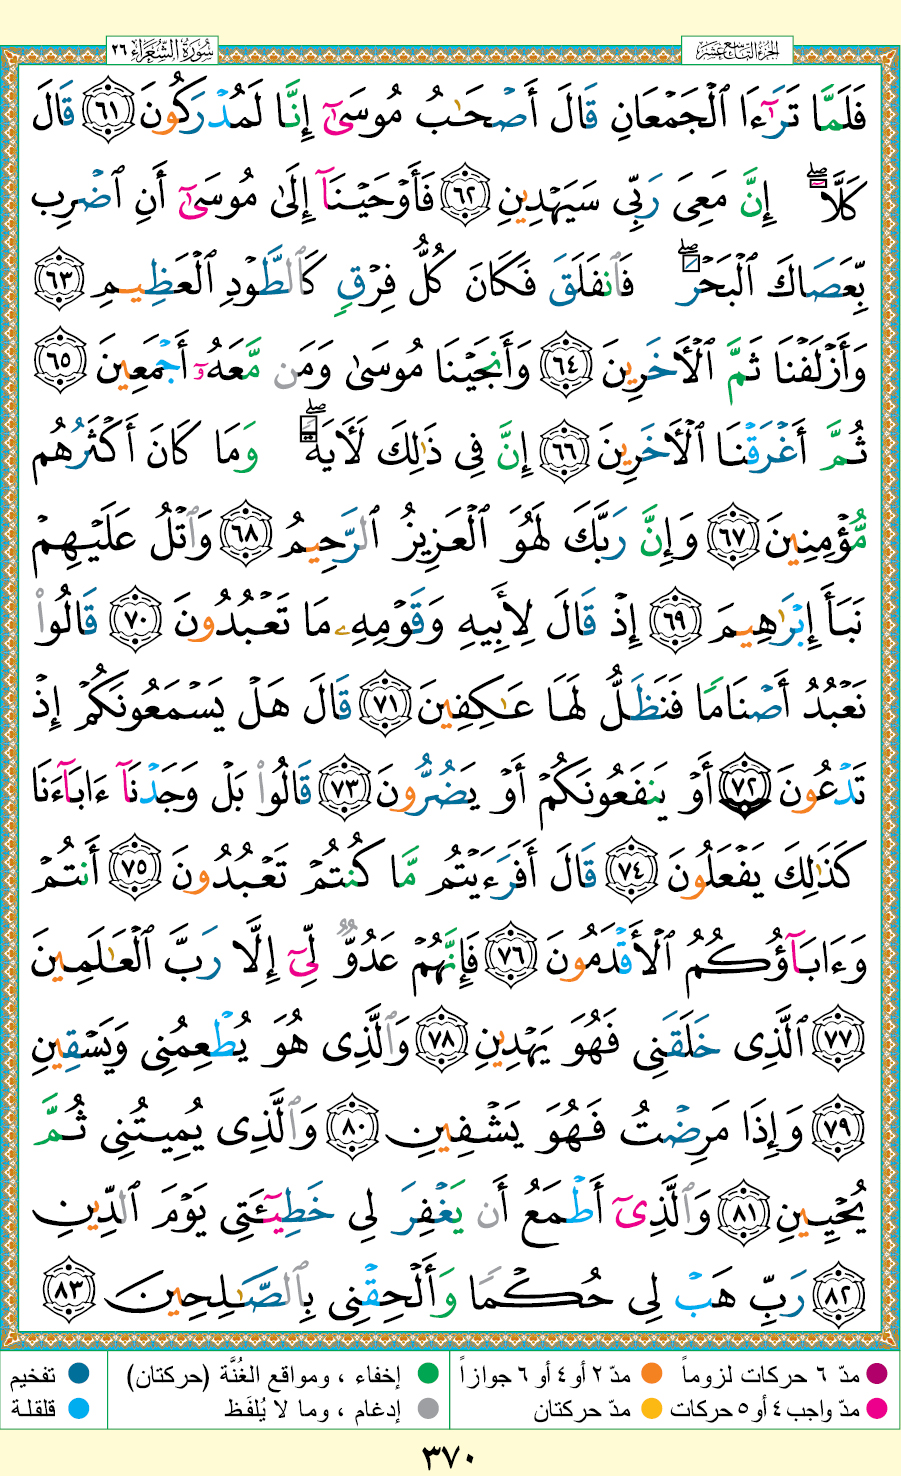 الجزء التاسع عشر
سورة الشعراء ٢٦
فَلَمَّا تَرَٰٓءَا ٱلْجَمْعَانِ قَالَ أَصْحَٰبُ مُوسَىٰٓ إِنَّا لَمُدْرَكُونَ ٦١ قَالَ
كَلَّآ ۖ إِنَّ مَعِىَ رَبِّى سَيَهْدِينِ ٦٢ فَأَوْحَيْنَآ إِلَىٰ مُوسَىٰٓ أَنِ ٱضْرِب
بِّعَصَاكَ ٱلْبَحْرَ ۖ فَٱنفَلَقَ فَكَانَ كُلُّ فِرْقٍ كَٱلطَّوْدِ ٱلْعَظِيمِ ٦٣
وَأَزْلَفْنَا ثَمَّ ٱلْأَخَرِينَ ٦٤ وَأَنجَيْنَا مُوسَىٰ وَمَن مَّعَهُۥٓ أَجْمَعِينَ ٦٥
ثُمَّ أَغْرَقْنَا ٱلْأَخَرِينَ ٦٦ إِنَّ فِى ذَٰلِكَ لَأَيَةً ۖ وَمَا كَانَ أَكْثَرُهُم
مُّؤْمِنِينَ ٦٧ وَإِنَّ رَبَّكَ لَهُوَ ٱلْعَزِيزُ ٱلرَّحِيمُ ٦٨ وَٱتْلُ عَلَيْهِمْ
نَبَأَ إِبْرَٰهِيمَ ٦٩ إِذْ قَالَ لِأَبِيهِ وَقَوْمِهِۦ مَا تَعْبُدُونَ ٧٠ قَالُوا۟
نَعْبُدُ أَصْنَامًا فَنَظَلُّ لَهَا عَٰكِفِينَ ٧١ قَالَ هَلْ يَسْمَعُونَكُمْ إِذْ
تَدْعُونَ ٧٢ أَوْ يَنفَعُونَكُمْ أَوْ يَضُرُّونَ ٧٣ قَالُوا۟ بَلْ وَجَدْنَآ ءَابَآءَنَا
كَذَٰلِكَ يَفْعَلُونَ ٧٤ قَالَ أَفَرَءَيْتُم مَّا كُنتُمْ تَعْبُدُونَ ٧٥ أَنتُمْ
وَءَابَآؤُكُمُ ٱلْأَقْدَمُونَ ٧٦ فَإِنَّهُمْ عَدُوٌّ لِّىٓ إِلَّا رَبَّ ٱلْعَٰلَمِينَ
٧٧ ٱلَّذِى خَلَقَنِى فَهُوَ يَهْدِينِ ٧٨ وَٱلَّذِى هُوَ يُطْعِمُنِى وَيَسْقِينِ
٧٩ وَإِذَا مَرِضْتُ فَهُوَ يَشْفِينِ ٨٠ وَٱلَّذِى يُمِيتُنِى ثُمَّ
يُحْيِينِ ٨١ وَٱلَّذِىٓ أَطْمَعُ أَن يَغْفِرَ لِى خَطِيٓـَٔتِى يَوْمَ ٱلدِّينِ
٨٢ رَبِّ هَبْ لِى حُكْمًا وَأَلْحِقْنِى بِٱلصَّٰلِحِينَ ٨٣
مدّ ٦ حركات لزوماً مدّ ٢ أو ٤ أو ٦ جوازاً إخفاء ، ومواقع الغُنَّة (حركتان) تفخيم
مدّ واجب ٤ أو ٥ حركات مدّ حركتان إدغام ، وما لا يُلفَظ قلقلة
٣٧٠